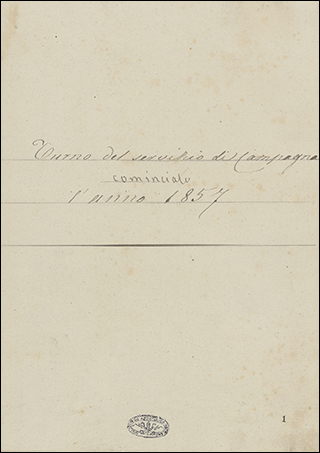 Turno del servizio di Campagna
cominciato
l'anno 1857
1